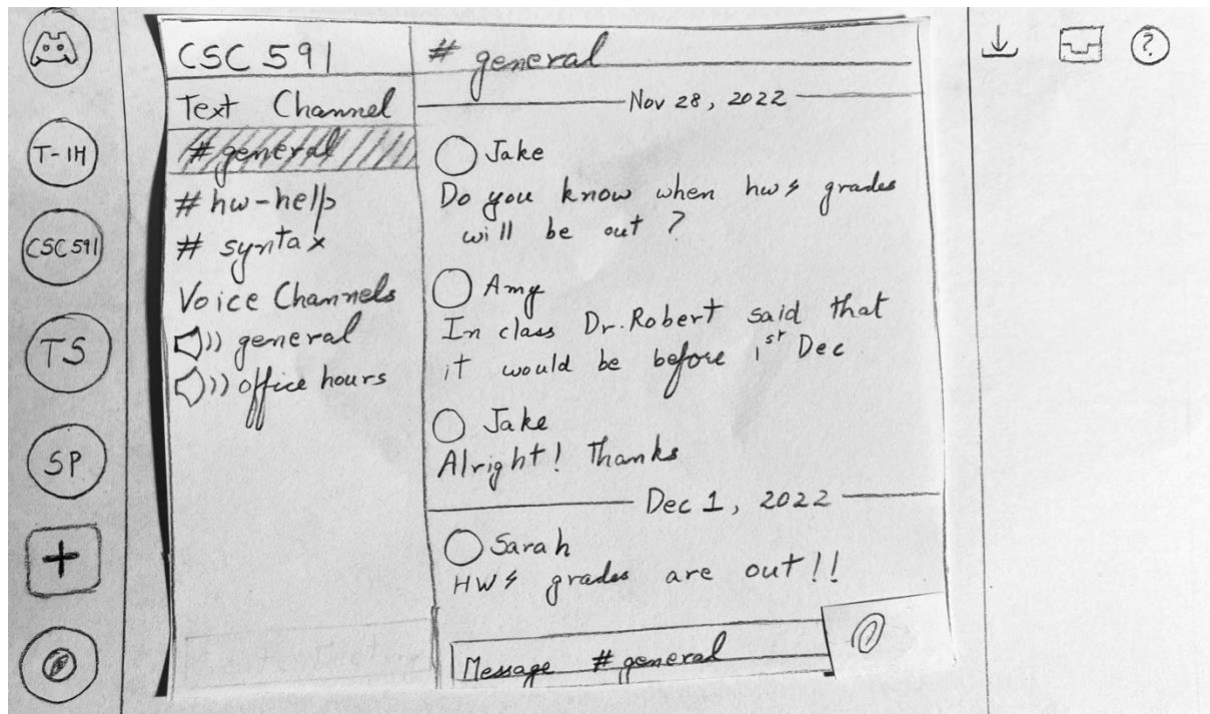 T-IH
CSC 591
TS
SP
+
CSC 591
Text Channel
# general
# hw-help
# syntax
Voice Channels
general
office hours
# general
Nov 28, 2022
Jake
Do you know when hw4 grades
will be out ?
Amy
In class Dr. Robert said that
it would be before 1st Dec
Jake
Alright! Thanks
Dec 1, 2022
Sarah
HW4 grades are out!!
Message # general
?